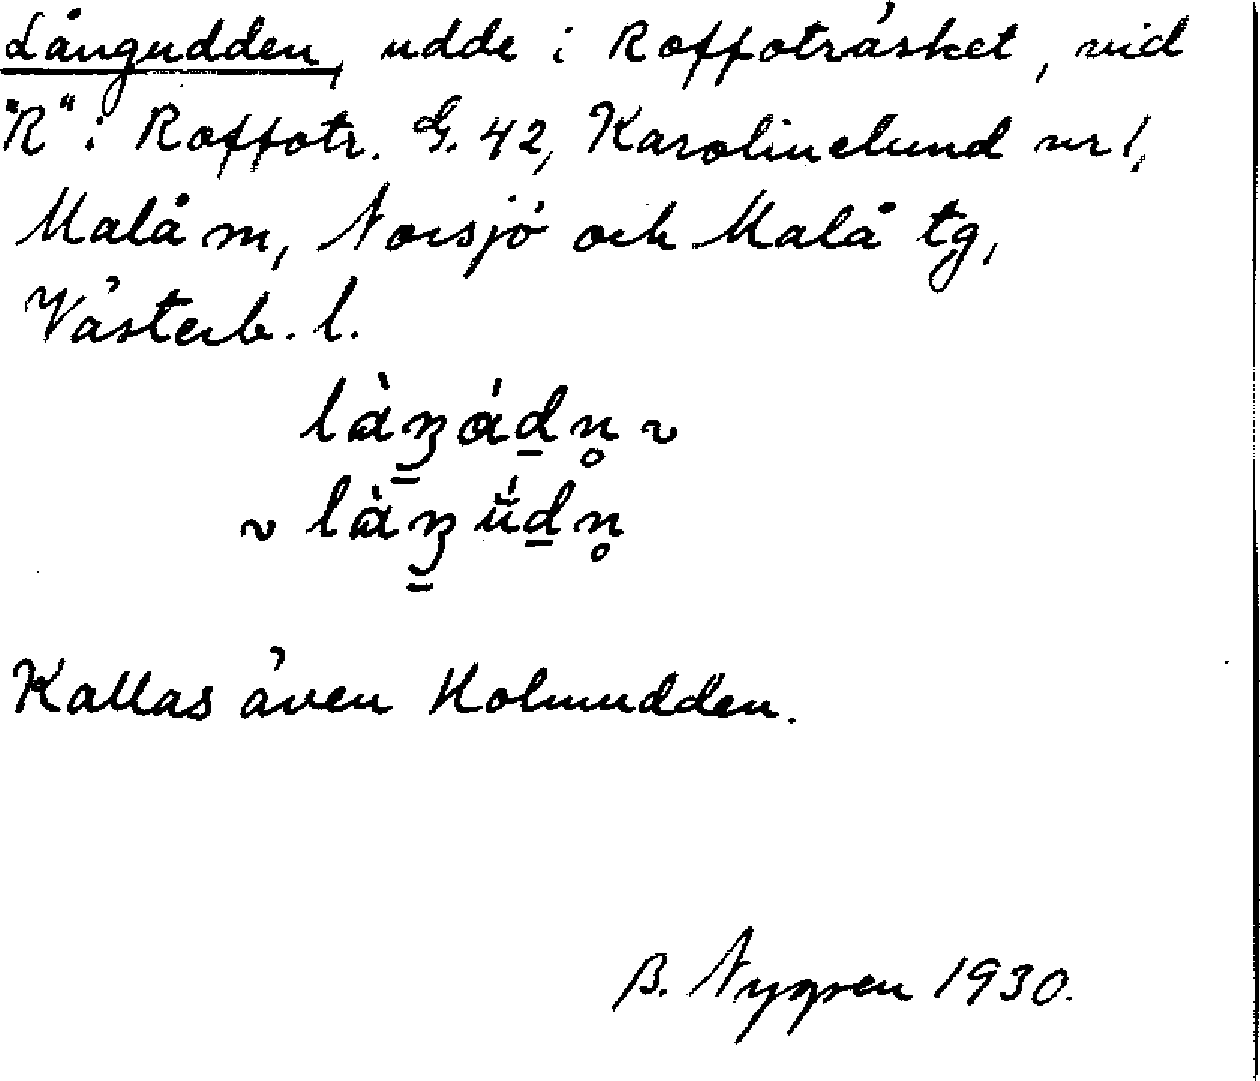 Långudden, udde i Roffoträsket, vid
"R" i Roffotr. G. 42, Karolinelund nr 1,
Malå m, Norsjö och Malå tg,
Västerb. l.
~
~
Kallas även Holmudden.
B. Nygren 1930.